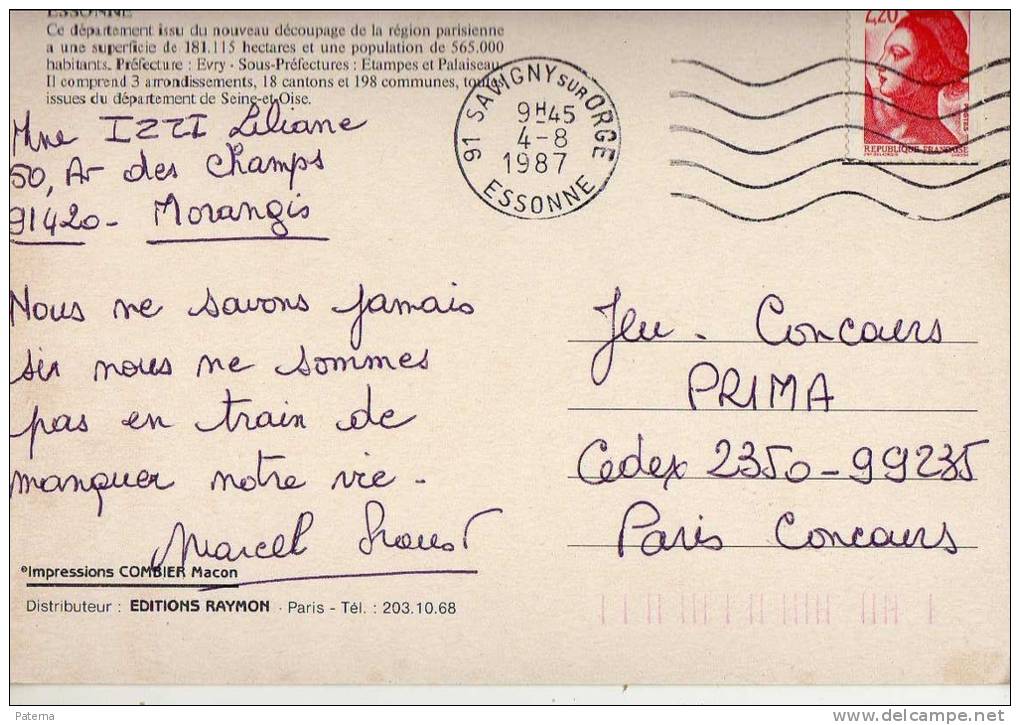 ESSONNE
Ce département issu du nouveau découpage de la région parisienne
a une superficie de 181.115 hectares et une population de 565.000
habitants. Préfecture : Evry - Sous-Préfectures : Etampes et Palaiseau.
Il comprend 3 arrondissements, 18 cantons et 198 communes, toutes
issues du département de Seine-et-Oise.
Mme IZZI Liliane
50, Av des Champs
91420 - Morangis
91 SAVIGNY SUR ORGE
9H45
4-8
1987
ESSONNE
2,20
REPUBLIQUE FRANÇAISE
Nous ne savons jamais
si nous ne sommes
pas en train de
manquer notre vie -
Marcel Proust
Jeu - Concours
PRIMA
Cedex 2350 - 99235
Paris Concours
Impressions COMBIER Macon
Distributeur : EDITIONS RAYMON - Paris - Tél. : 203.10.68
Paterna
www.delcampe.net